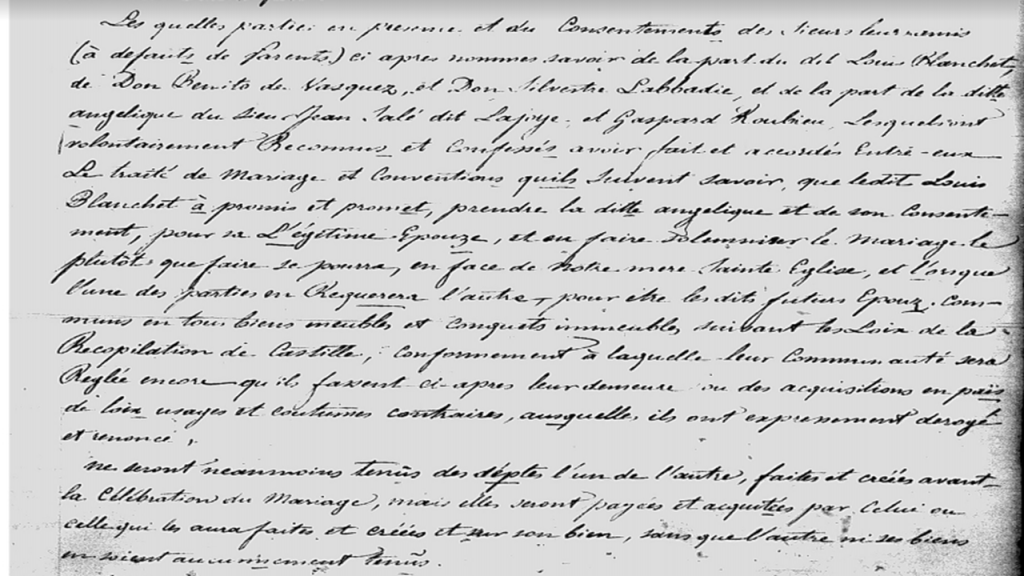 Les quelles parties en presence et du Consentements des sieurs leurs amis
(à defauts de parents) ci apres nommés savoir de la part du dit Louis Blanchet,
de Don Benito de Vasquez, et Don Silvestre Labbadie, et de la part de la ditte
angelique du sieur Jean Salé dit Lajoye, et Gaspard Roubieu, Lesquels ont
volontairement Reconnus et Confessés avoir fait et accordés Entre-eux
Le traité de Mariage et Conventions quils suivent savoir, que ledit Louis
Blanchet à promis et promet, prendre la ditte angelique et de son Consente-
ment, pour sa L'égitime Epouze, et en faire solemniser le mariage le
plutôt que faire se pourra, en face de notre mere Sainte Eglise, et lorsque
l'une des parties en Requerera l'autre, pour être les dits futurs Epoux, com-
muns en tous biens meubles et conquets immeubles suivant les Loix de la
Recopilation de Castille, conformement à laquelle leur Communauté sera
Reglée encore qu'ils fassent ci-apres leur demeure ou des acquisitions en païs
de loix usages et coutumes contraires, auxquelles ils ont expressement derogé
et renoncé,
ne seront neanmoins tenûs des déptes l'un de l'autre, faites et créées avant
la Célébration du Mariage, mais elles seront payées et acquitées par Celui ou
celle qui les aura faites et créées et sur son bien, sans que l'autre ni ses biens
en soient aucunement tenûs.